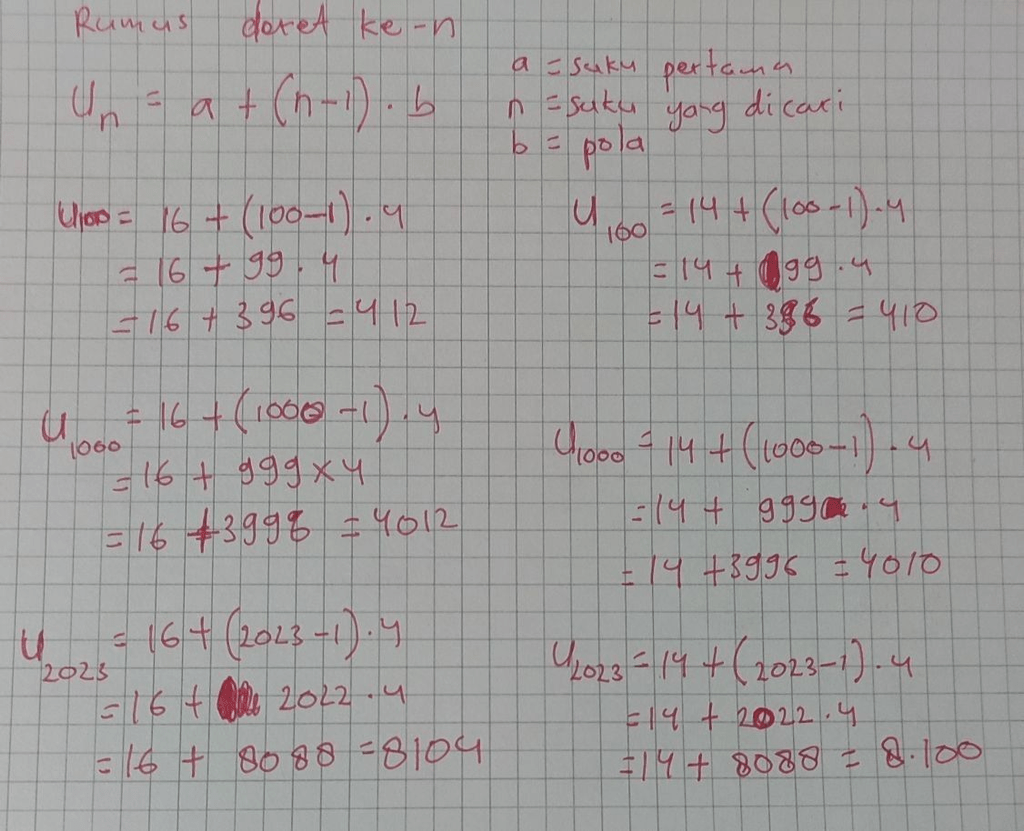 Rumus deret ke-n
Un = a + (n-1) . b
a = suku pertama
n = suku yang dicari
b = pola
U100 = 16 + (100-1) . 4
= 16 + 99 . 4
= 16 + 396 = 412
U100 = 14 + (100-1) . 4
= 14 + 99 . 4
= 14 + 396 = 410
U1000 = 16 + (1000-1) . 4
= 16 + 999 x 4
= 16 + 3996 = 4012
U1000 = 14 + (1000-1) . 4
= 14 + 999 . 4
= 14 + 3996 = 4010
U2023 = 16 + (2023-1) . 4
= 16 + 2022 . 4
= 16 + 8088 = 8104
U2023 = 14 + (2023-1) . 4
= 14 + 2022 . 4
= 14 + 8088 = 8.100